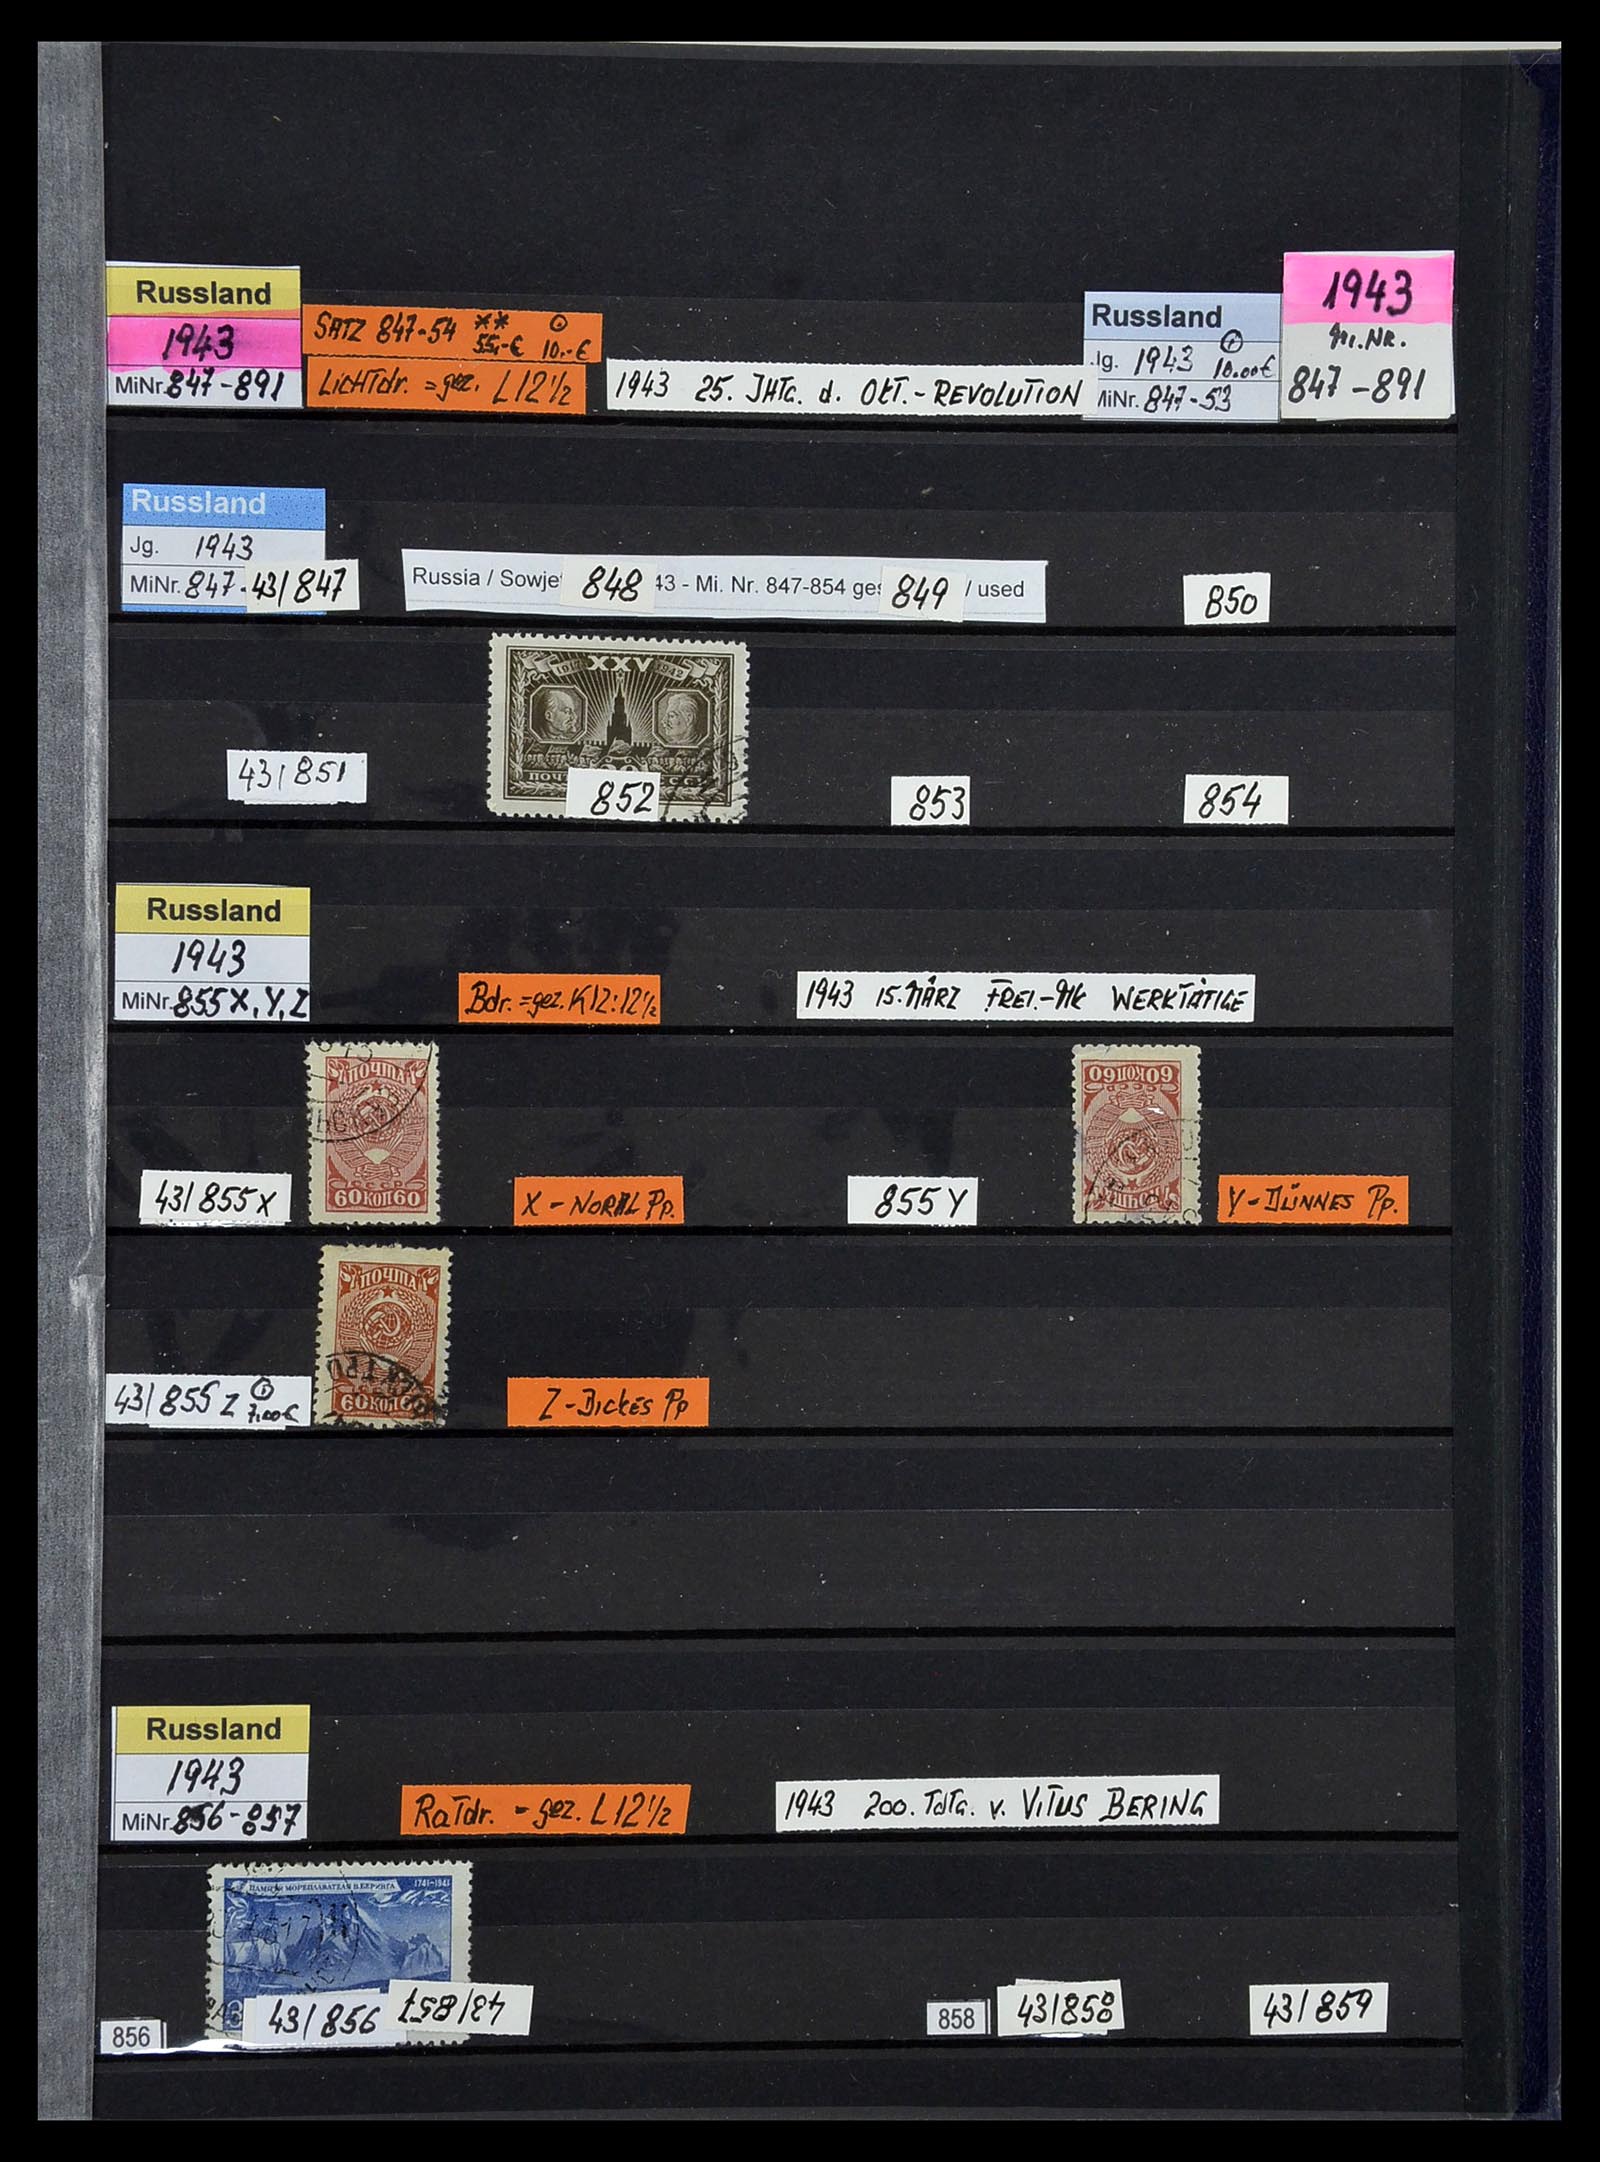 Russland
1943
MiNr. 847-891
SATZ 847-54 ** 55,-€ 10.-€
LICHTdr. = gez. L12½
1943 25. JHTG. d. OKT.-REVOLUTION
Russland
Jg. 1943 10.00€
MiNr. 847-53
1943
Mi.NR.
847-891
Russland
Jg. 1943
MiNr. 847-
43/847
Russia / Sowje
848
43 - Mi. Nr. 847-854 ges
849
/ used
850
XXV
1917 1942
43/851
852
853
854
Russland
1943
MiNr. 855X,Y,Z
Bdr. = gez. K12:12½
1943 15. MÄRZ FREI.-MK WERKTÄTIGE
ПОЧТА
СССР
60 КОП 60
43/855X
X-NORAL Pp.
855Y
60 КОП 60
ПОЧТА
Y-DÜNNES Pp.
ПОЧТА
60 КОП
43/855 Z 7.00€
Z-DICKES Pp
Russland
1943
MiNr. 856-857
RaTdr. = gez. L12½
1943 200. TdTG. v. VITUS BERING
ПАМЯТИ МОРЕПЛАВАТЕЛЯ В.БЕРИНГА 1741-1941
856
43/856
43/857
858
43/858
43/859